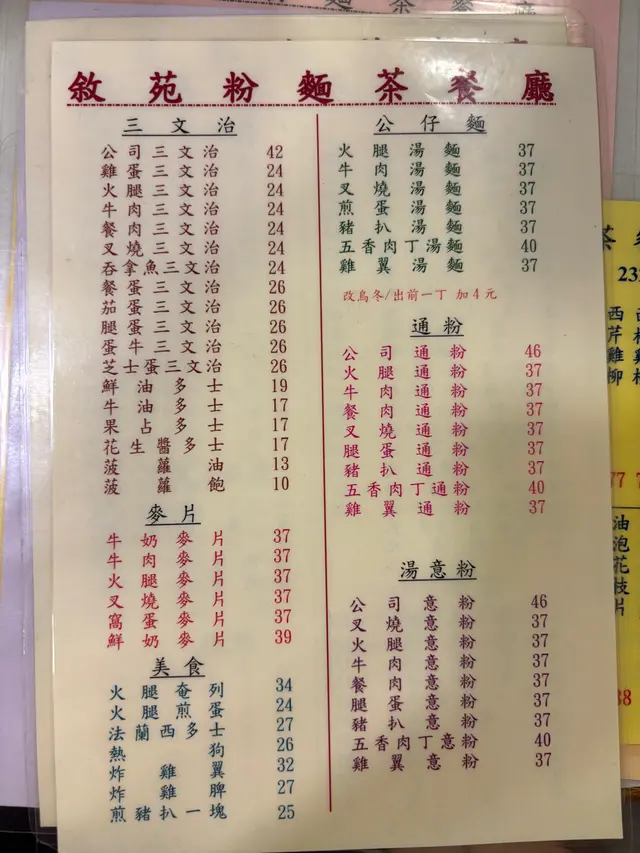 敘苑粉麵茶餐廳
三文治
公司三文治 42
雞蛋三文治 24
火腿三文治 24
牛肉三文治 24
餐肉三文治 24
叉燒三文治 24
吞拿魚三文治 24
餐蛋三文治 26
茄蛋三文治 26
腿蛋三文治 26
蛋牛三文治 26
芝士蛋三文治 26
鮮油多士 19
牛油多士 17
果占多士 17
花生醬多士 17
菠蘿油 13
菠蘿飽 10
麥片
牛奶麥片 37
牛肉麥片 37
火腿麥片 37
叉燒麥片 37
窩蛋麥片 37
鮮奶麥片 39
美食
火腿奄列 34
火腿煎蛋 24
法蘭西多士 27
熱狗 26
炸雞翼 32
炸雞脾 27
煎豬扒一塊 25
公仔麵
火腿湯麵 37
牛肉湯麵 37
叉燒湯麵 37
煎蛋湯麵 37
豬扒湯麵 37
五香肉丁湯麵 40
雞翼湯麵 37
改烏冬/出前一丁 加4元
通粉
公司通粉 46
火腿通粉 37
牛肉通粉 37
餐肉通粉 37
叉燒通粉 37
腿蛋通粉 37
豬扒通粉 37
五香肉丁通粉 40
雞翼通粉 37
湯意粉
公司意粉 46
叉燒意粉 37
火腿意粉 37
牛肉意粉 37
餐肉意粉 37
腿蛋意粉 37
豬扒意粉 37
五香肉丁意粉 40
雞翼意粉 37
茶
西芹雞柳
77
油泡花枝片